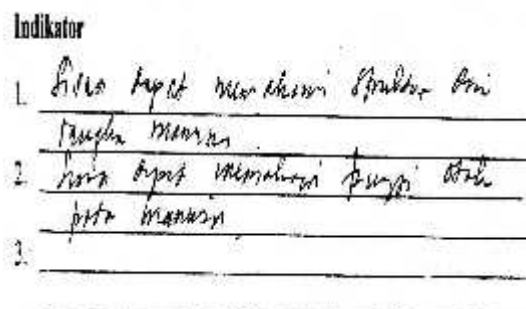 Indikator
1. Siswa dapat memahami struktur dari
rangka manusia
2. Siswa dapat memahami fungsi
pada manusia
3.